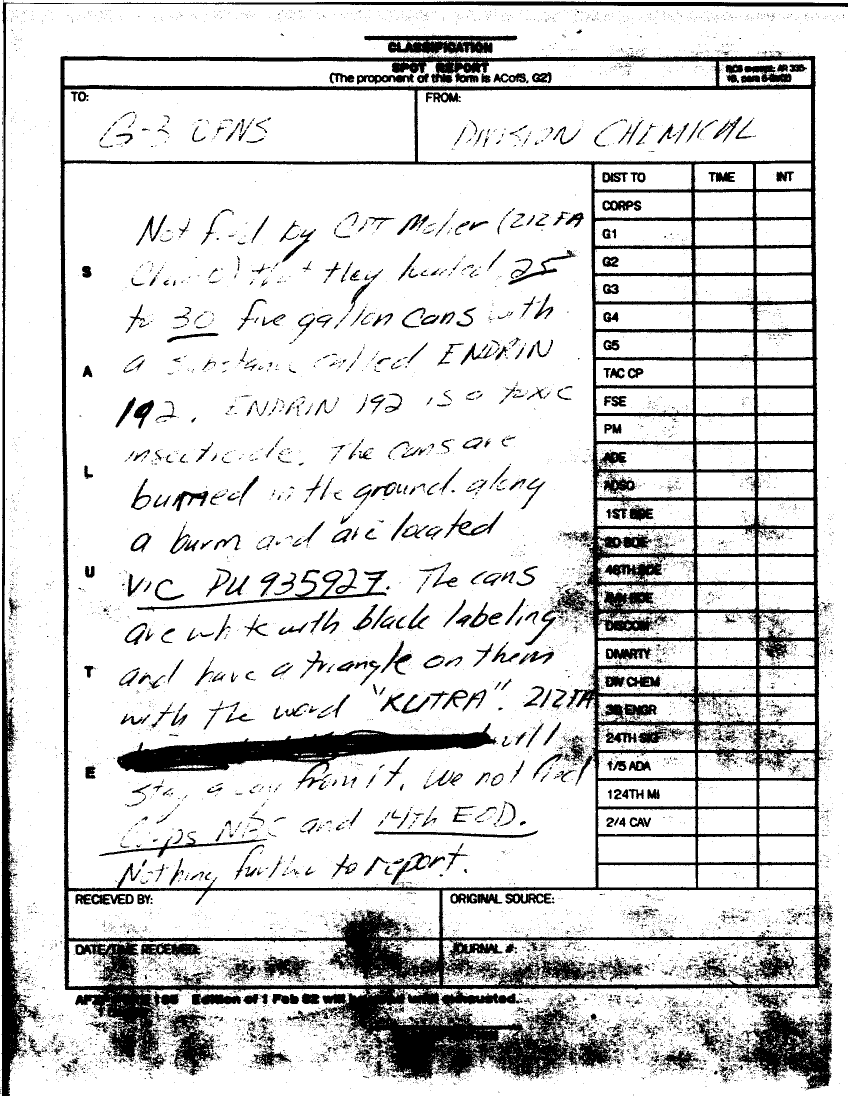 CLASSIFICATION
SPOT REPORT
(The proponent of this form is ACofS, G2)
TO:
G-3 OPNS
FROM:
DIVISION CHEMICAL
DIST TO TIME INT
CORPS
G1
G2
G3
G4
G5
TAC CP
FSE
PM
ADE
1ST BDE
2D BDE
DISCOM
DIVARTY
DIV CHEM
3D ENGR
24TH SIG
1/5 ADA
124TH MI
2/4 CAV
S
A
L
U
T
E
Notified by CPT (212FA
that they located 25
to 30 five gallon cans with
a substance called ENDRIN
192. ENDRIN 192 is a toxic
insecticide. The cans are
burried in the ground. along
a burm and are located
VIC PU 935927. The cans
are white with black labeling
and have a triangle on them
with the word "KUTRA". 212FA
will
stay away from it. We notified
Corps NBC and 14th EOD.
Nothing further to report.
RECIEVED BY:
ORIGINAL SOURCE:
DATE/TIME RECEIVED:
JOURNAL #:
Edition of 1 Feb 82 will be used until exhausted.